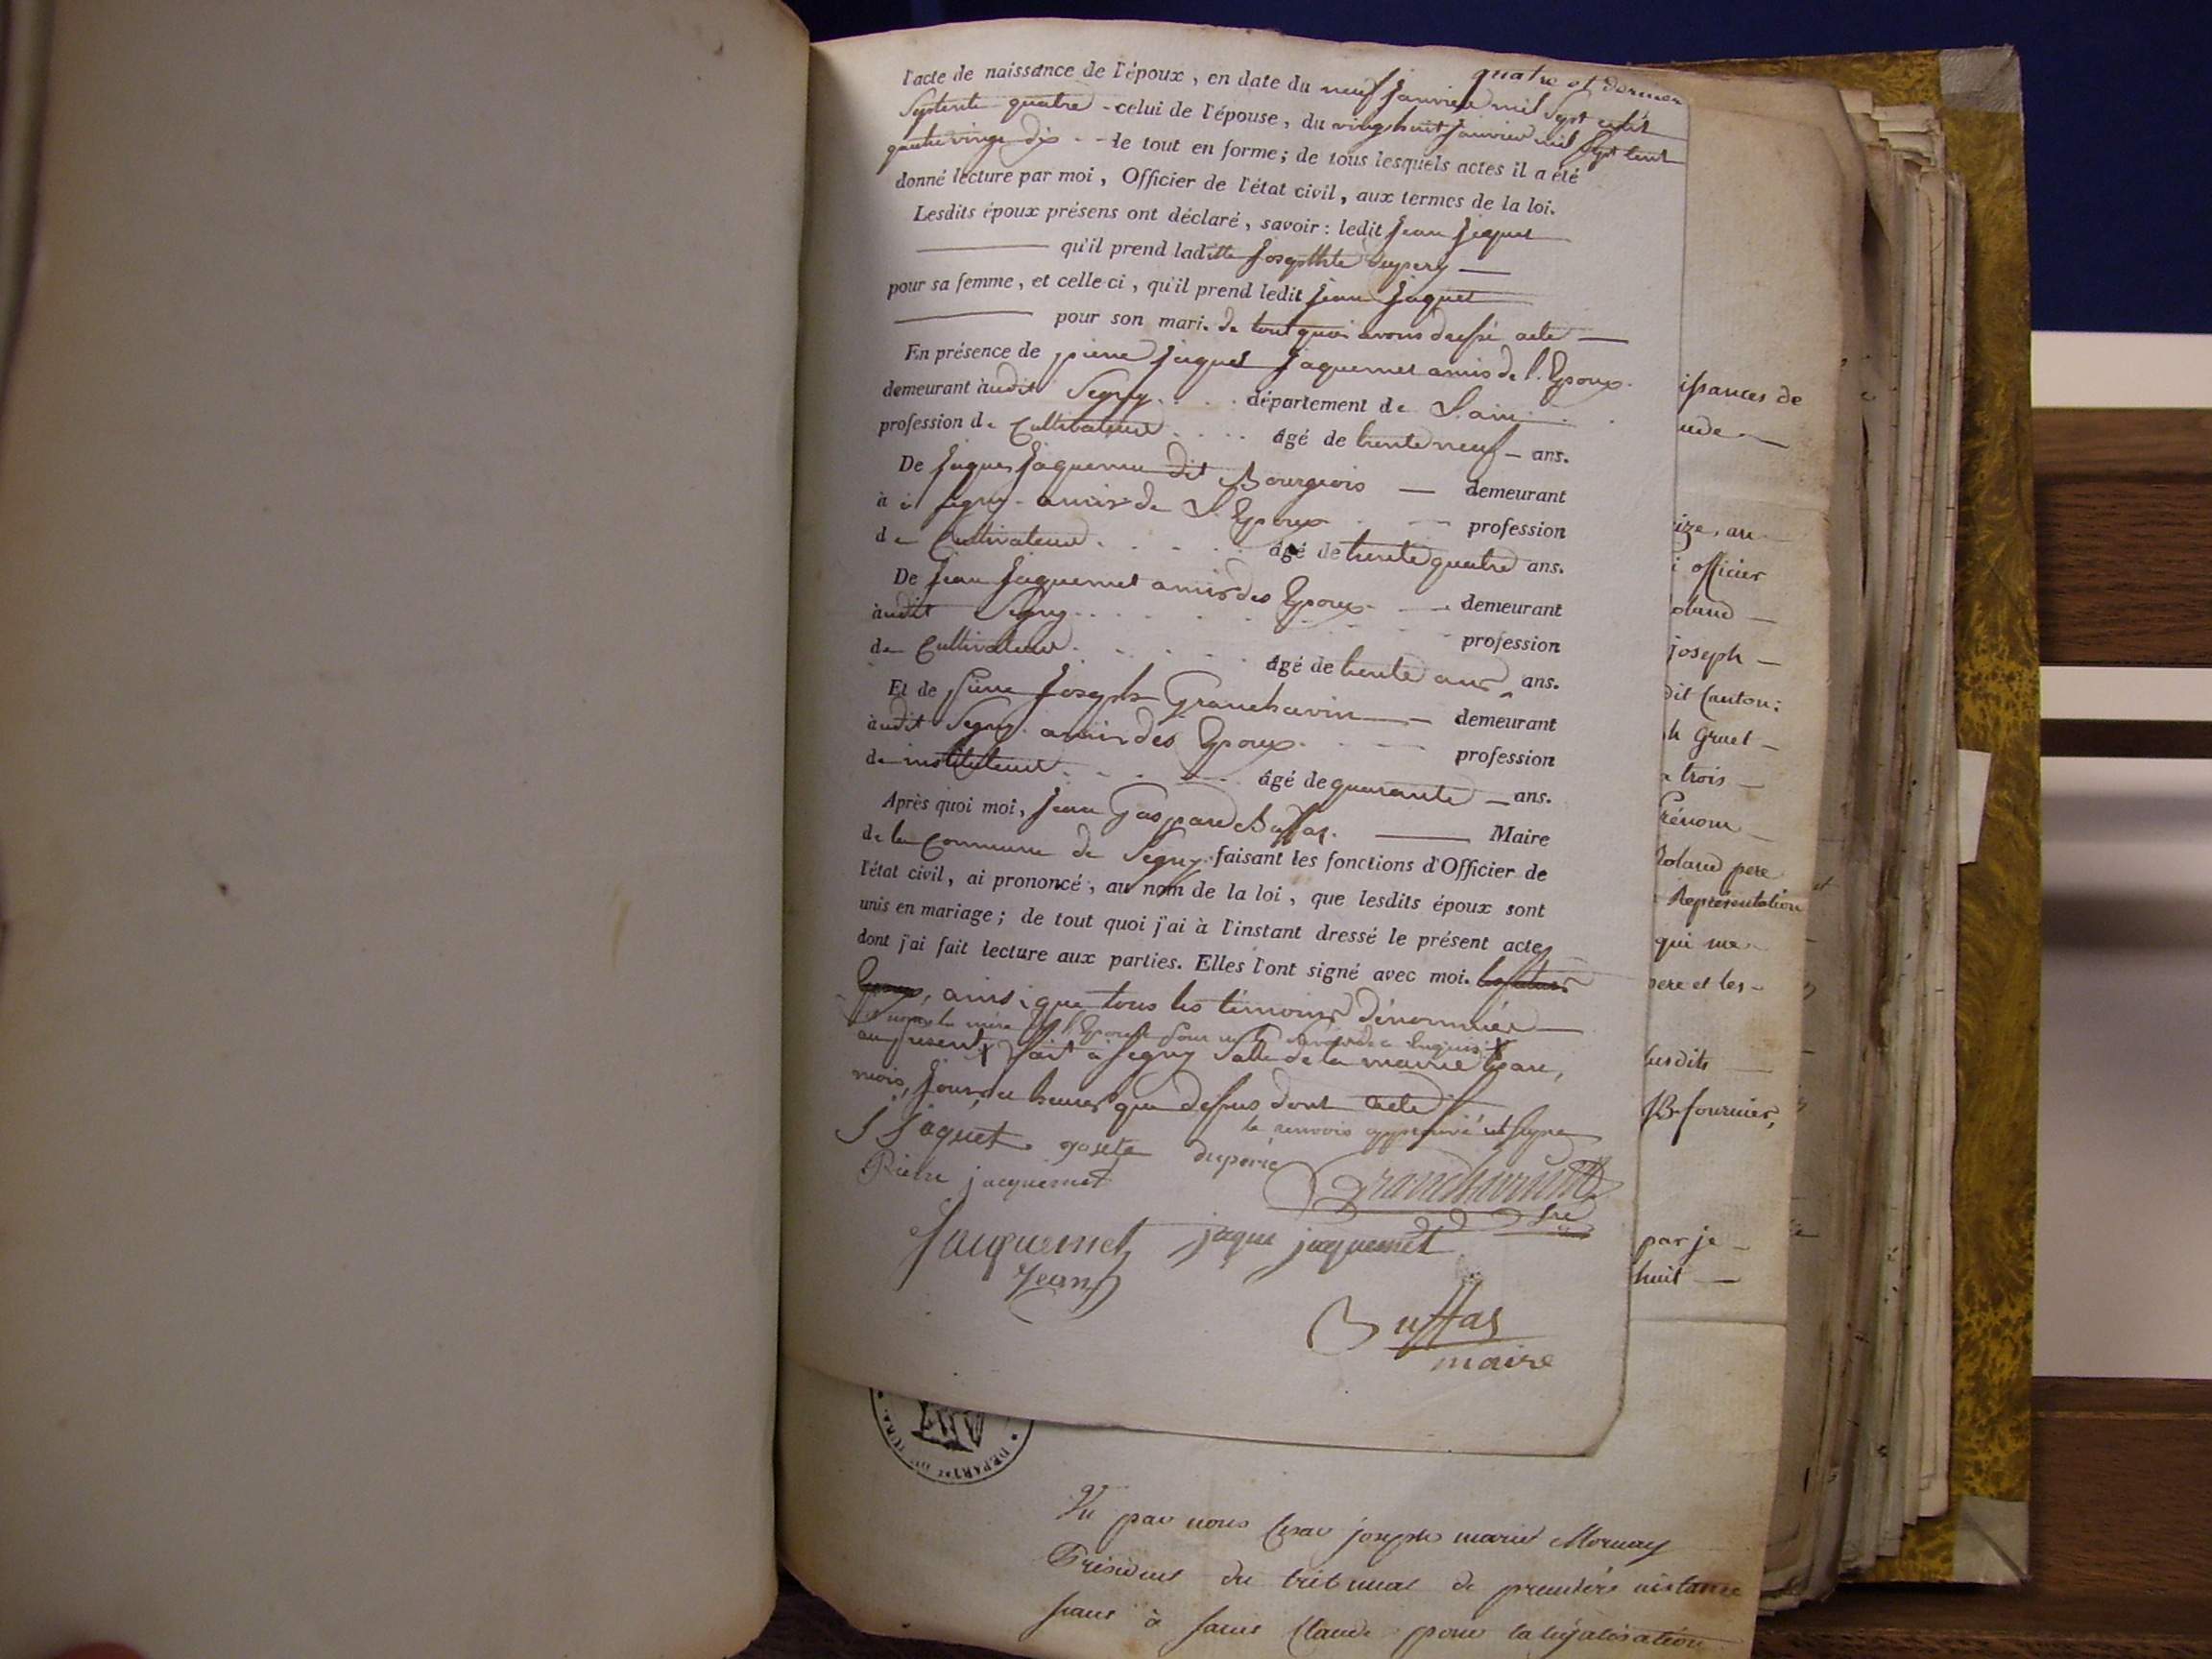 quatre et dernier
l'acte de naissance de l'époux, en date du neuf Janvier mil Sept cent
Septente quatre - celui de l'épouse, du vingt huit Janvier mil Sept cent
quatre vingt dix - - le tout en forme; de tous lesquels actes il a été
donné lecture par moi, Officier de l'état civil, aux termes de la loi.
Lesdits époux présens ont déclaré, savoir: ledit Jean Jaquet
qu'il prend laditte Josephte Dupery —
pour sa femme, et celle ci, qu'il prend ledit Jean Jaquet
pour son mari. de tout quoi avons dressé acte —
En présence de pierre Jaques Jaquemet amis de l'Epoux.
demeurant audit Segny . . . département de L'ain . .
profession de Cultivateur . . . . âgé de trente neuf — ans.
De Jaques Jaquemet dit Bourgeois — demeurant
à Segny - amis de L'Epoux . . — profession
de Cultivateur . . . . . âgé de trente quatre ans.
De Jean Jaquemet amis des Epoux - — demeurant
audit Segny . . . . . . . profession
de Cultivateur . . . . . âgé de trente ans ans.
Et de pierre Joseph Granchavin — demeurant
audit Segny . amis des Epoux . . — profession
de instituteur . . . . âgé de quarante — ans.
Après quoi moi, Jean Gaspard Buffas. — Maire
de la Commune de Segny faisant les fonctions d'Officier de
l'état civil, ai prononcé, au nom de la loi, que lesdits époux sont
unis en mariage; de tout quoi j'ai à l'instant dressé le présent acte,
dont j'ai fait lecture aux parties. Elles l'ont signé avec moi.
ainsi que tous les témoins dénommés —
la mère de l'Epouse pour ne
au présent, fait à Segny Salle de la mairie les an,
mois, Jour, et heures que dessus dont acte
le renvois approuvé et signé
J Jaquet josete duperié
Pierre jacquemet Granchavin
Jacquemet jaque jaquemet
Jean
Buffas
maire
issances de
ize, au
officier
joseph —
dit Canton:
h Gruet —
trois —
Prénom
Roland pere
Représentation
qui me
pere et les —
susdits
JB fournier,
par je —
huit —
DÉPARTt DU JURA
Vu par nous Cesar joseph marie Mornay
Président du tribunal de première instance
seant à saint Claude pour la légalisation